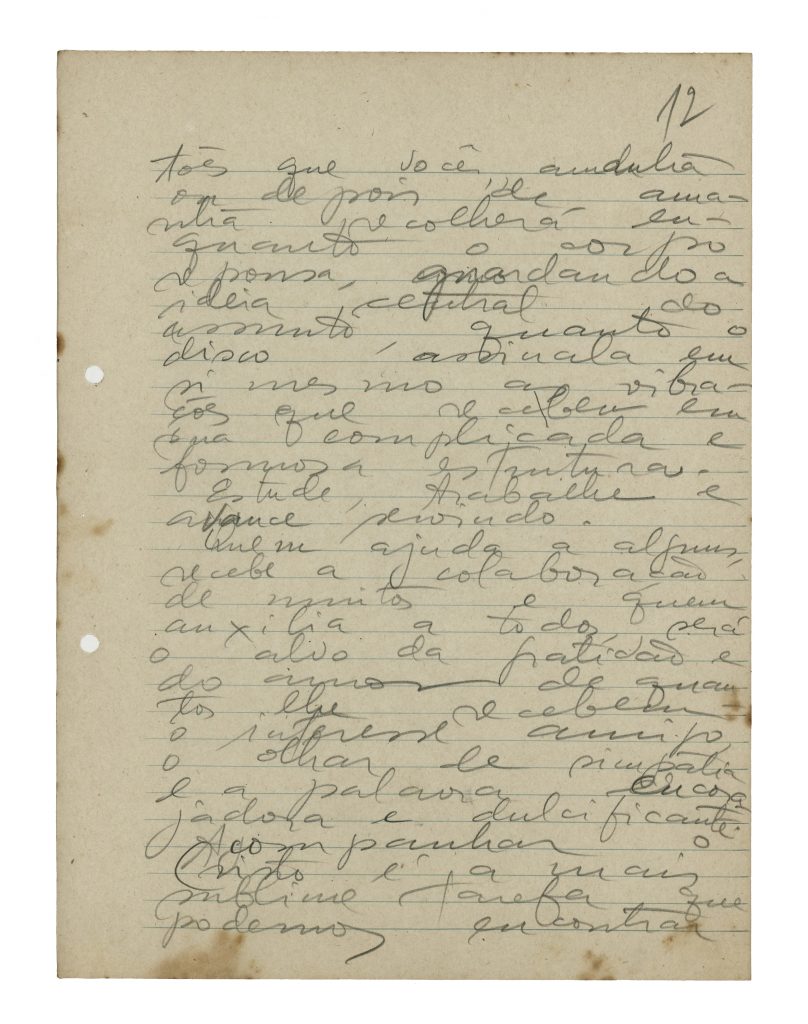 12
tões que você, amanhã
ou depois de ama-
nhã recolherá en-
quanto o corpo
repousa, guardando a
idéia central do
assunto quanto o
disco assinala em
si mesmo as vibra-
ções que recebeu em
sua complicada e
formosa estrutura.
Estude, trabalhe e
avance servindo.
Quem ajuda a alguns,
recebe a colaboração
de muitos e quem
auxilia a todos será
o alvo da gratidão e
do amor de quan
tos lhe recebem
o interesse amigo,
o olhar de simpatia
e a palavra encora
jadora e dulcificante.
Acompanhar o
Cristo é a mais
sublime tarefa que
podemos encontrar